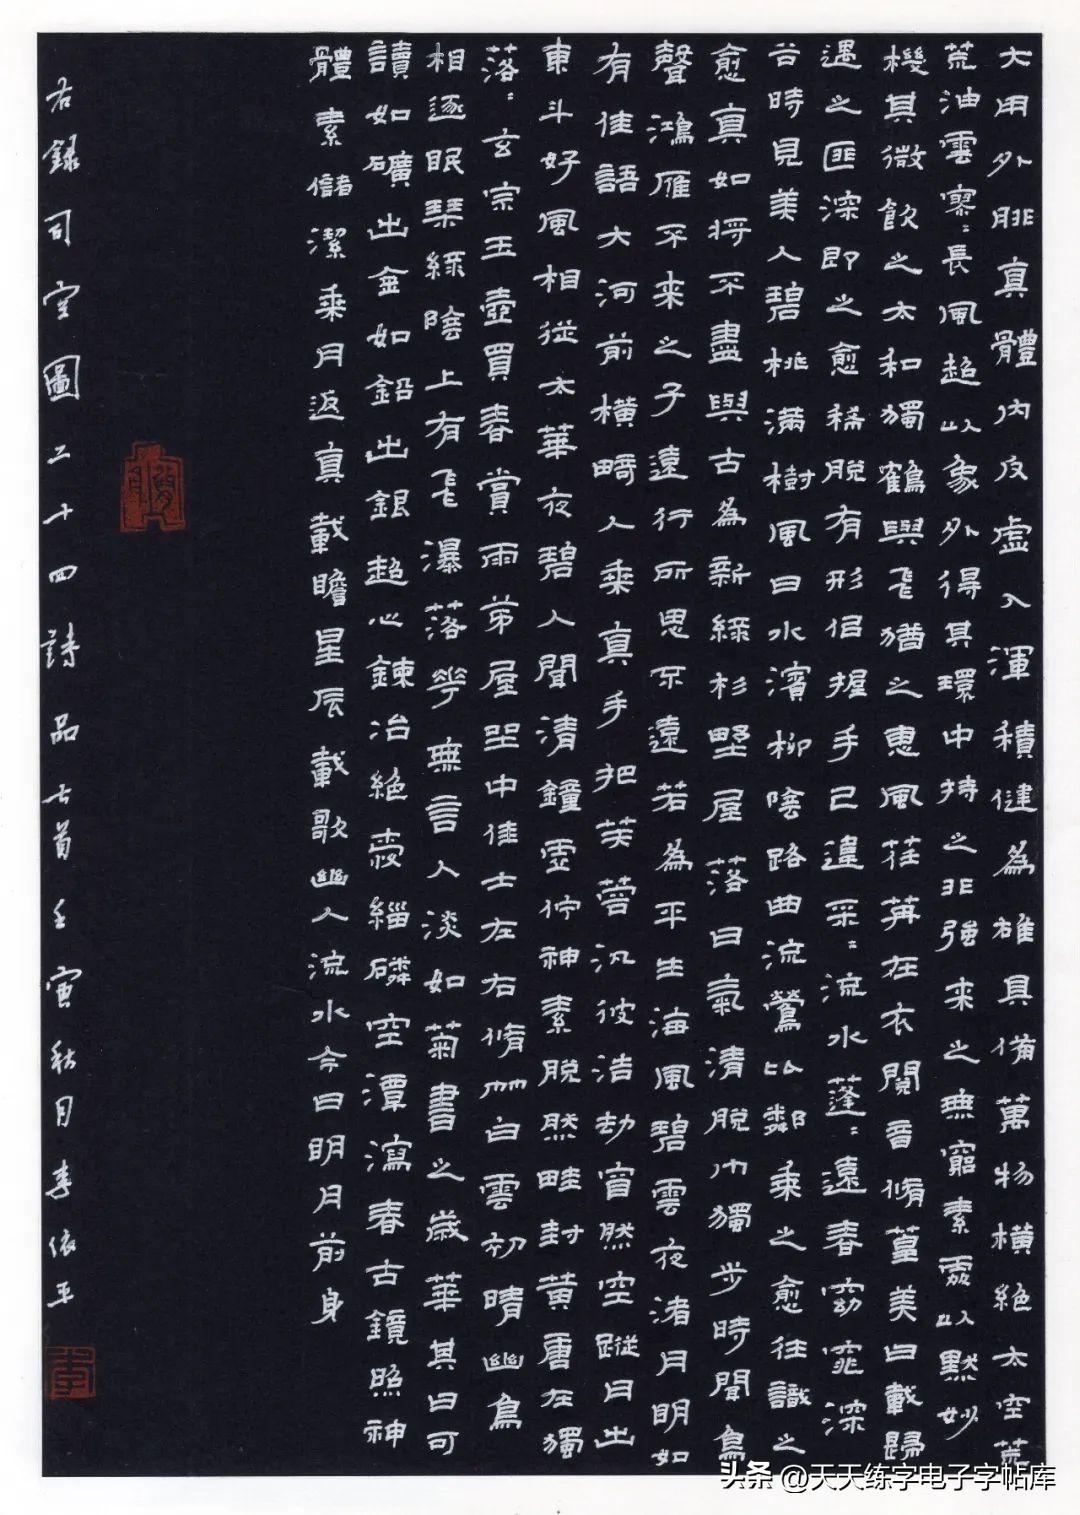 大用外腓真體內反虛入渾積健為雄具備萬物橫絕太空荒
荒油雲寥﹕長風超以象外得其環中持之非強來之無窮素處以默妙
機其微飲之太和獨鶴與飛猶之惠風荏苒在衣閱音脩篁美曰載歸
遇之匪深即之愈稀脫有形侣握手已違采﹕流水蓬﹕遠春窈窕深
谷時見美人碧桃滿樹風日水濱柳陰路曲流鶯比鄰乘之愈往識之
愈真如將不盡與古為新綠杉野屋落日氣清脫巾獨步時聞鳥
聲鴻雁不來之子遠行所思不遠若為平生海風碧雲夜渚月明如
有佳語大河前橫疇人乘真手把芙蓉汎彼浩劫窅然空蹤月出
東斗好風相從太華夜碧人聞清鐘虛佇神素脫然畦封黃唐在獨
落﹕玄宗玉壺買春賞雨茅屋坐中佳士左右脩竹白雲初晴幽鳥
相逐眠琴綠陰上有飛瀑落花無言人淡如菊書之歲華其曰可
讀如礦出金如鉛出銀超心鍊冶絕愛緇磷空潭瀉春古鏡照神
體素儲潔乘月返真載瞻星辰載歌幽人流水今日明月前身
右錄司空圖二十四詩品七首壬寅秋月李依玉
头条 @天天练字电子字帖库